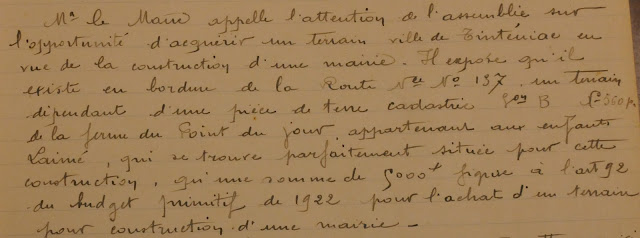 Mr le Maire appelle l'attention de l'assemblée sur
l'opportunité d'acquérir un terrain ville de Tinténiac en
vue de la construction d'une mairie. Il expose qu'il
existe en bordure de la Route Nle No 137, un terrain
dépendant d'une pièce de terre cadastrée Son B No 360p.
de la ferme du Point du jour, appartenant aux enfants
Lainé, qui se trouve parfaitement située pour cette
construction, qu'une somme de 5000f figure à l'art 92
du budget primitif de 1922 pour l'achat d'un terrain
pour construction d'une mairie -